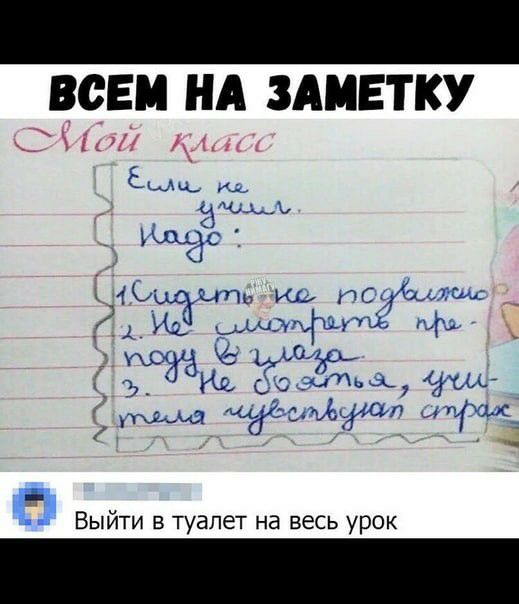 ВСЕМ НА ЗАМЕТКУ
Мой класс
Если не
учил.
Надо:
1. Сидеть не подвижно
2. Не смотреть пре-
поду в глаза.
3. Не бояться, учи-
теля чувствуют страх
Выйти в туалет на весь урок